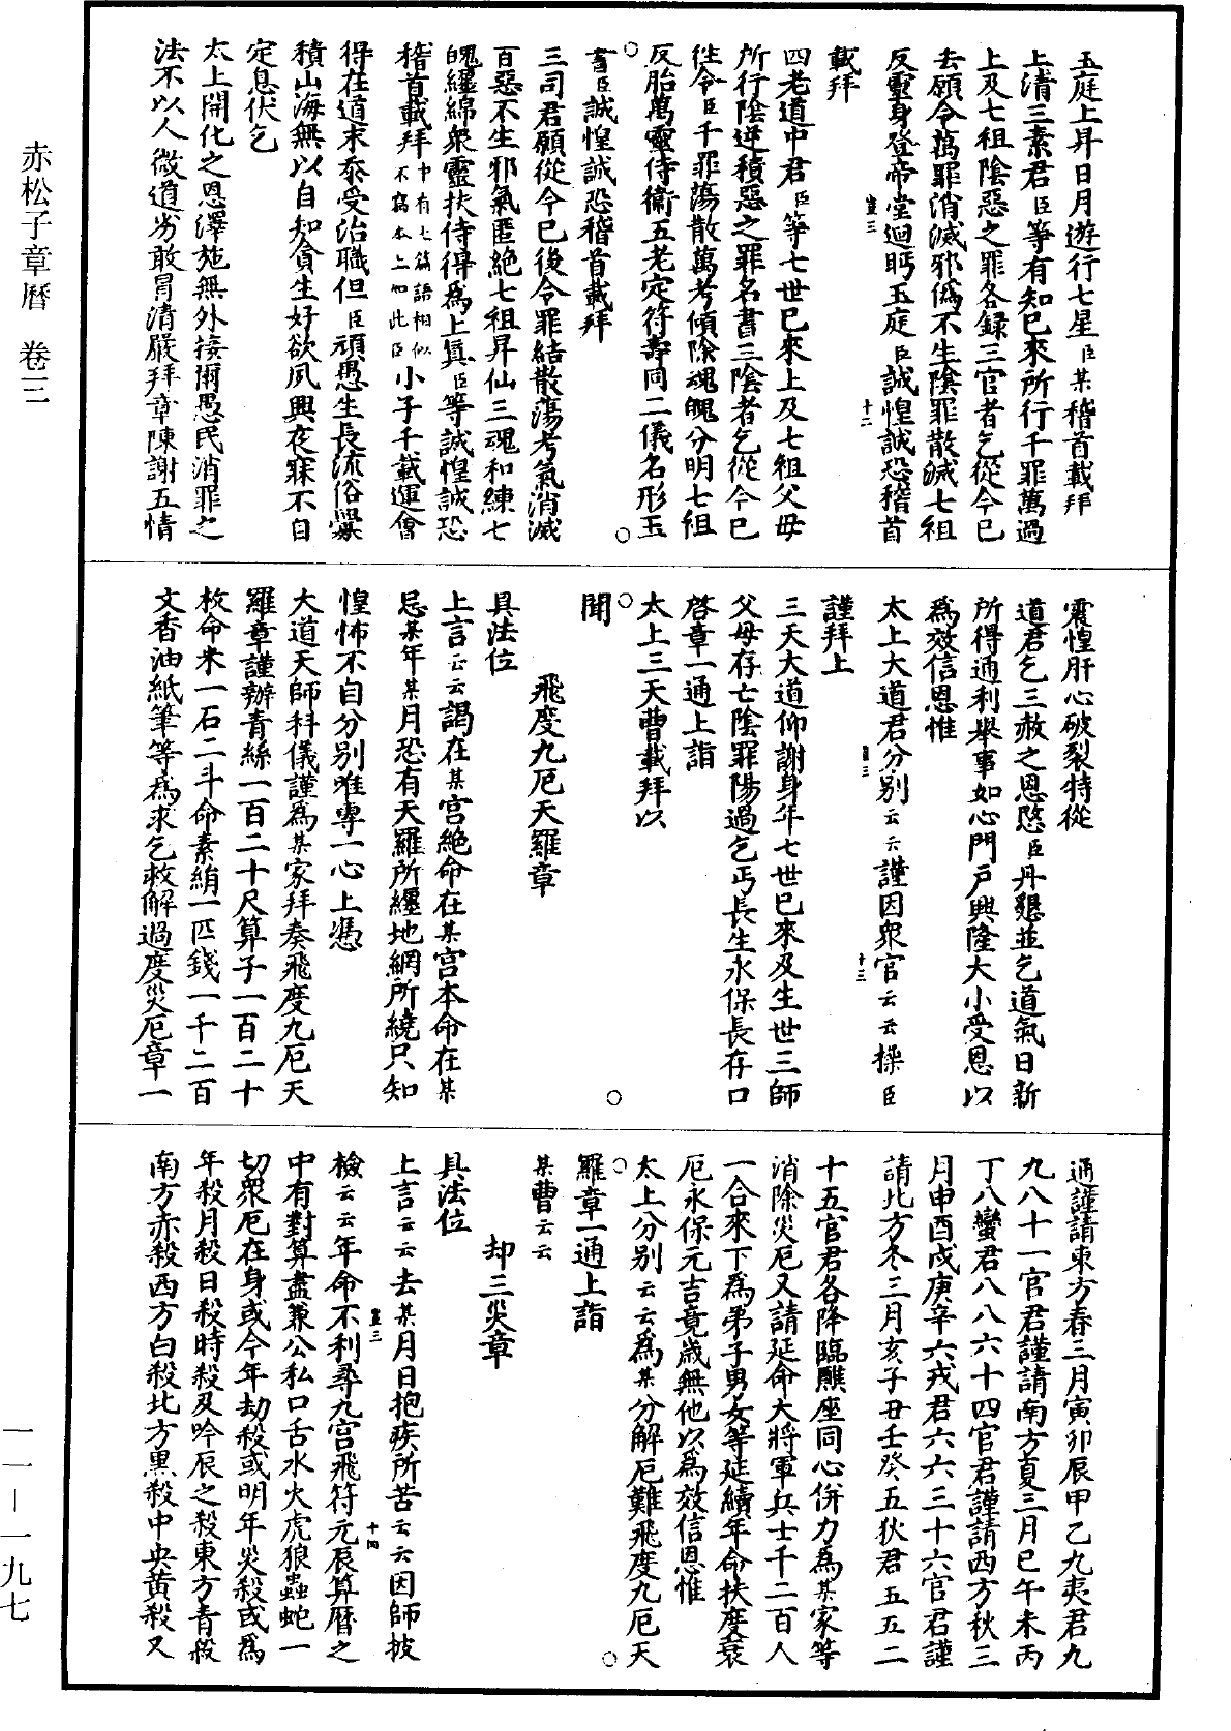 赤松子章曆　卷三
玉庭上昇日月遊行七星臣某稽首載拜
上清三素君臣等有知已來所行千罪萬過
上及七祖陰惡之罪各錄三官者乞從今已
去願令萬罪消滅邪僞不生陰罪散滅七祖
反靈身登帝堂迴眄玉庭臣誠惶誠恐稽首
豈三　十二
載拜
四老道中君臣等七世已來上及七祖父母
所行陰逆積惡之罪名書三陰者乞從今已
徃令臣千罪蕩散萬考傾除魂魄分明七祖
反胎萬靈侍衞五老定符壽同二儀名形玉
書臣誠惶誠恐稽首載拜
三司君願從今已後令罪結散蕩考氣消滅
百惡不生邪氣匿絶七祖昇仙三魂和練七
魄纏綿衆靈扶侍得爲上眞臣等誠惶誠恐
稽首載拜中有七篇語相似不寫本上如此臣小子千載運會
得在道末忝受治職但臣頑愚生長流俗釁
積山海無以自知貪生好欲夙興夜寐不自
定息伏乞
太上開化之恩澤施無外接爾愚民消罪之
法不以人微道劣敢冒清嚴拜章陳謝五情
震惶肝心破裂特從
道君乞三赦之恩愍臣丹懇並乞道氣日新
所得通利舉事如心門戶興隆大小受恩以
爲效信恩惟
太上大道君分別云云謹因衆官云云操臣
十三
謹拜上
三天大道仰謝身年七世已來及生世三師
父母存亡陰罪陽過乞丐長生永保長存口
啓章一通上詣
太上三天曹載拜以
聞
飛度九厄天羅章
具法位
上言云云謁在某宮絶命在某宮本命在某
忌某年某月恐有天羅所纒地網所繞只知
惶怖不自分別唯專一心上憑
大道天師科儀謹爲某家拜奏飛度九厄天
羅章謹辦青絲一百二十尺算子一百二十
枚命米一石二斗命素絹一匹錢一千二百
文香油紙筆等爲求乞救解過度災厄章一
通謹請東方春三月寅卯辰甲乙九夷君九
九八十一官君謹請南方夏三月巳午未丙
丁八蠻君八八六十四官君謹請西方秋三
月申酉戌庚辛六戎君六六三十六官君謹
請北方冬三月亥子丑壬癸五狄君五五二
十五官君各降臨醮座同心併力爲某家等
消除災厄又請延命大將軍兵士千二百人
一合來下爲弟子男女等延續年命扶度衰
厄永保元吉竟歲無他以爲效信恩惟
太上分別云云爲某分解厄難飛度九厄天
羅章一通上詣
某曹云云
却三災章
具法位
上言云云去某月日抱疾所苦云云因師披
豈三　十四
檢云云年命不利尋九宮飛符元辰算曆之
中有對算盡兼公私口舌水火虎狼蟲蛇一
切衆厄在身或今年劫殺或明年災殺或爲
年殺月殺日殺時殺及吟辰之殺東方青殺
南方赤殺西方白殺北方黑殺中央黃殺又
一一—一九七